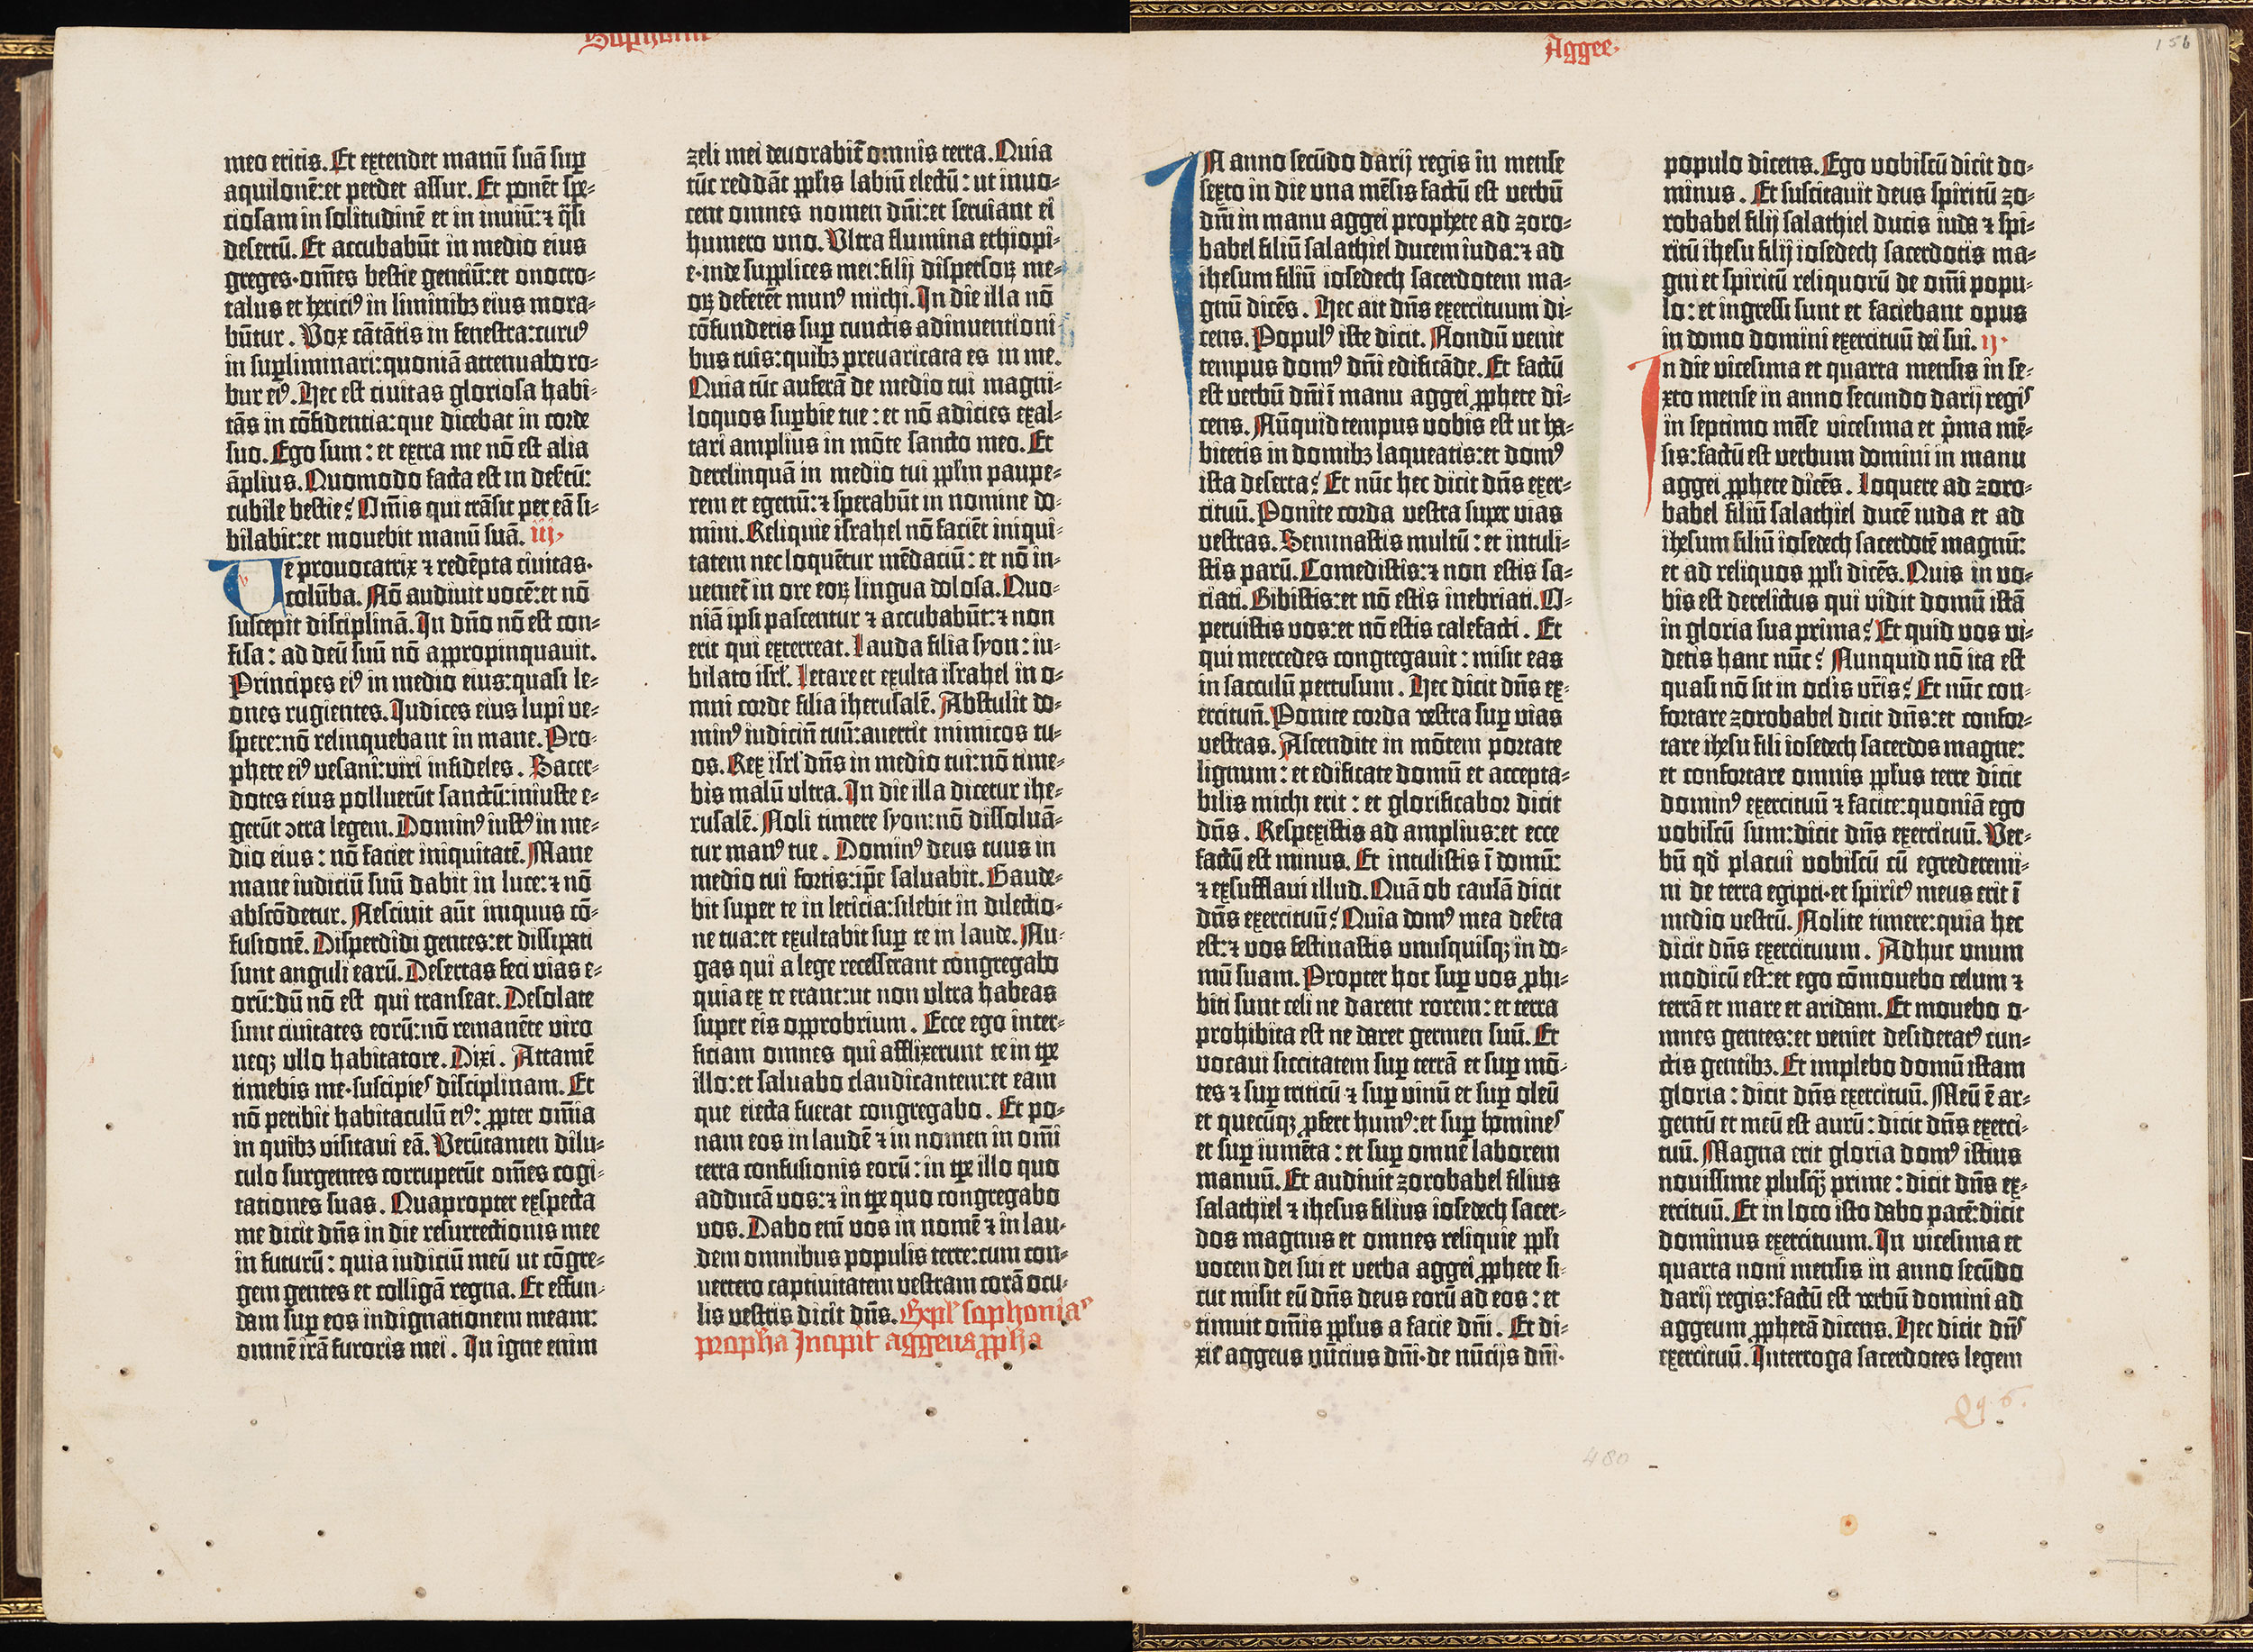 Sophonie
meo eritis. Et extendet manū suā suꝑ
aquilonē:et perdet assur. Et ponēt spe-
ciosam in solitudinē et in inuiū:⁊ q̄si
desertū. Et accubabūt in medio eius
greges·om̄es bestie gentiū:et onocro-
talus et hericiꝰ in liminibꝫ eius mora-
būtur. Vox cātātis in fenestra:coruꝰ
in suꝑliminari:quoniā attenuabo ro-
bur eiꝰ. Hec est ciuitas gloriosa habi-
tās in cōfidentia:que dicebat in corde
suo. Ego sum: et extra me nō est alia
āplius. Quomodo facta est in deẜtū:
cubile bestie? Om̄is qui trāsit per eā si-
bilabit:et mouebit manū suā. iij.
Ve prouocatrix ⁊ redēpta ciuitas·
colūba. Nō audiuit vocē:et nō
suscepit disciplinā. In dn̄o nō est con-
fisa: ad deū suū nō appropinquauit.
Principes eiꝰ in medio eius:quasi le-
ones rugientes. Iudices eius lupi ve-
spere:nō relinquebant in mane. Pro-
phete eiꝰ vesani:viri infideles. Sacer-
dotes eius polluerūt sanctū:iniuste e-
gerūt ↄtra legem. Dominꝰ iustꝰ in me-
dio eius: nō faciet iniquitatē. Mane
mane iudiciū suū dabit in luce:⁊ nō
abscōdetur. Nesciuit aūt iniquus cō-
fusionē. Disperdidi gentes:et dissipati
sunt anguli earū. Desertas feci vias e-
orū:dū nō est qui transeat. Desolate
sunt ciuitates eorū:nō remanēte viro
neqꝫ ullo habitatore. Dixi. Attamē
timebis me·suscipies disciplinam. Et
nō peribit habitaculū eiꝰ: ꝓpter om̄ia
in quibꝫ visitaui eā. Verūtamen dilu-
culo surgentes corruperūt om̄es cogi-
tationes suas. Quapropter exspecta
me dicit dn̄s in die resurrectionis mee
in futurū: quia iudiciū meū ut cōgre-
gem gentes et colligā regna. Et effun-
dam suꝑ eos indignationem meam:
omnē irā furoris mei. In igne enim
zeli mei deuorabit̄ omnis terra. Quia
tūc reddā pp̄lis labiū electū: ut inuo-
cent omnes nomen dn̄i:et seruiant ei
humero uno. Vltra flumina ethiopi-
e·inde supplices mei:filij dispersoꝝ me-
oꝝ deferēt munꝰ michi. In die illa nō
cōfunderis suꝑ cunctis adinuentioni
bus tuis:quibꝫ preuaricata es in me.
Quia tūc auferā de medio tui magni-
loquos suꝑbie tue: et nō adicies exal-
tari amplius in mōte sancto meo. Et
derelinquā in medio tui pp̄lm paupe-
rem et egenū:⁊ sperabūt in nomine do-
mini. Reliquie israhel nō faciēt iniqui-
tatem nec loquētur mēdaciū: et nō in-
ueniet̄ in ore eoꝝ lingua dolosa. Quo-
niā ipsi pascentur ⁊ accubabūt:⁊ non
erit qui exterreat. Lauda filia syon: iu-
bilato isrl̄. Letare et exulta israhel in o-
mni corde filia iherusalē. Abstulit do-
minꝰ iudiciū tuū:auertit inimicos tu-
os. Rex isrl̄ dn̄s in medio tui:nō time-
bis malū ultra. In die illa dicetur ihe-
rusalē. Noli timere syon:nō dissoluā-
tur manꝰ tue. Dominꝰ deus tuus in
medio tui fortis:ip̄e saluabit. Gaude-
bit super te in leticia:silebit in dilectio-
ne tua:et exultabit suꝑ te in laude. Nu-
gas qui a lege recesserant congregabo
quia ex te erant:ut non ultra habeas
super eis opprobrium. Ecce ego inter-
ficiam omnes qui afflixerunt te in tꝑe
illo:et saluabo claudicantem:et eam
que eiecta fuerat congregabo. Et po-
nam eos in laudē ⁊ in nomen in om̄i
terra confusionis eorū: in tꝑe illo quo
adducā vos:⁊ in tꝑe quo congregabo
vos. Dabo eni vos in nomē ⁊ in lau-
dem omnibus populis terre:cum con-
uertero captiuitatem vestram corā ocu-
lis vestris dicit dn̄s. Expl' sophonias
propha Incipit aggeus ꝓpha
Aggee.
156
IN anno secūdo darij regis in mense
sexto in die una mēsis factū est verbū
dn̄i in manu aggei prophete ad zoro-
babel filiū salathiel ducem iuda:⁊ ad
ihesum filiū iosedech sacerdotem ma-
gnū dicēs. Hec ait dn̄s exercituum di-
cens. Populꝰ iste dicit. Nondū venit
tempus domꝰ dn̄i edificāde. Et factū
est verbū dn̄i ī manu aggei ꝓphete di-
cens. Nūquid tempus vobis est ut ha-
bitetis in domibꝫ laqueatis:et domꝰ
ista deserta? Et nūc hec dicit dn̄s exer-
cituū. Ponite corda vestra super vias
vestras. Seminastis multū: et intuli-
stis parū. Comedistis:⁊ non estis sa-
ciati. Bibistis:et nō estis inebriati. O-
peruistis vos:et nō estis calefacti. Et
qui mercedes congregauit: misit eas
in sacculū pertusum. Hec dicit dn̄s ex-
ercituū. Ponite corda vestra suꝑ vias
vestras. Ascendite in mōtem portate
lignum: et edificate domū et accepta-
bilis michi erit: et glorificabor dicit
dn̄s. Respexistis ad amplius:et ecce
factū est minus. Et intulistis ī domū:
⁊ exsufflaui illud. Quā ob causā dicit
dn̄s exercituū? Quia domꝰ mea deẜta
est:⁊ vos festinastis unusquisqꝫ in do-
mū suam. Propter hoc suꝑ vos ꝓhi-
biti sunt celi ne darent rorem: et terra
prohibita est ne daret germen suū. Et
vocaui siccitatem suꝑ terrā et suꝑ mō-
tes ⁊ suꝑ triticū ⁊ suꝑ vinū et suꝑ oleū
et quecūqꝫ ꝓfert humꝰ:et suꝑ homines
et suꝑ iumēta: et suꝑ omnē laborem
manuū. Et audiuit zorobabel filius
salathiel ⁊ ihesus filius iosedech sacer-
dos magnus et omnes reliquie pp̄li
vocem dei sui et verba aggei ꝓphete si-
cut misit eū dn̄s deus eorū ad eos: et
timuit om̄is pp̄lus a facie dn̄i. Et di-
xit aggeus nūcius dn̄i·de nūcijs dn̄i·
populo dicens. Ego vobiscū dicit do-
minus. Et suscitauit deus spiritū zo-
robabel filij salathiel ducis iuda ⁊ spi-
ritū ihesu filij iosedech sacerdotis ma-
gni et spiritū reliquorū de om̄i popu-
lo: et ingressi sunt et faciebant opus
in domo domini exercituū dei sui. ij.
In die vicesima et quarta mensis in se-
xto mense in anno secundo darij regis
in septimo mēse vicesima et p̄ma mē-
sis:factū est verbum domini in manu
aggei ꝓphete dicēs. Loquere ad zoro-
babel filiū salathiel ducē iuda et ad
ihesum filiū iosedech sacerdotē magnū:
et ad reliquos pp̄li dicēs. Quis in vo-
bis est derelictus qui vidit domū istā
in gloria sua prima? Et quid vos vi-
detis hanc nūc? Nunquid nō ita est
quasi nō sit in oclis vr̄is? Et nūc con-
fortare zorobabel dicit dn̄s:et confor-
tare ihesu fili iosedech sacerdos magne:
et confortare omnis pp̄lus terre dicit
dominꝰ exercituū ⁊ facite:quoniā ego
vobiscū sum:dicit dn̄s exercituū. Ver-
bū qd̄ placui vobiscū cū egrederemi-
ni de terra egipti·et spiritꝰ meus erit ī
medio vestrū. Nolite timere:quia hec
dicit dn̄s exercituum. Adhuc unum
modicū est:et ego cōmouebo celum ⁊
terrā et mare et aridam. Et mouebo o-
mnes gentes:et veniet desideratꝰ cun-
ctis gentibꝫ. Et implebo domū istam
gloria: dicit dn̄s exercituū. Meū ē ar-
gentū et meū est aurū: dicit dn̄s exerci-
tuū. Magna erit gloria domꝰ istius
nouissime plusqꝫ prime: dicit dn̄s ex-
ercituū. Et in loco isto dabo pacē:dicit
dominus exercituum. In vicesima et
quarta noni mensis in anno secūdo
darij regis:factū est verbū domini ad
aggeum ꝓphetā dicens. Hec dicit dn̄s
exercituū. Interroga sacerdotes legem
480